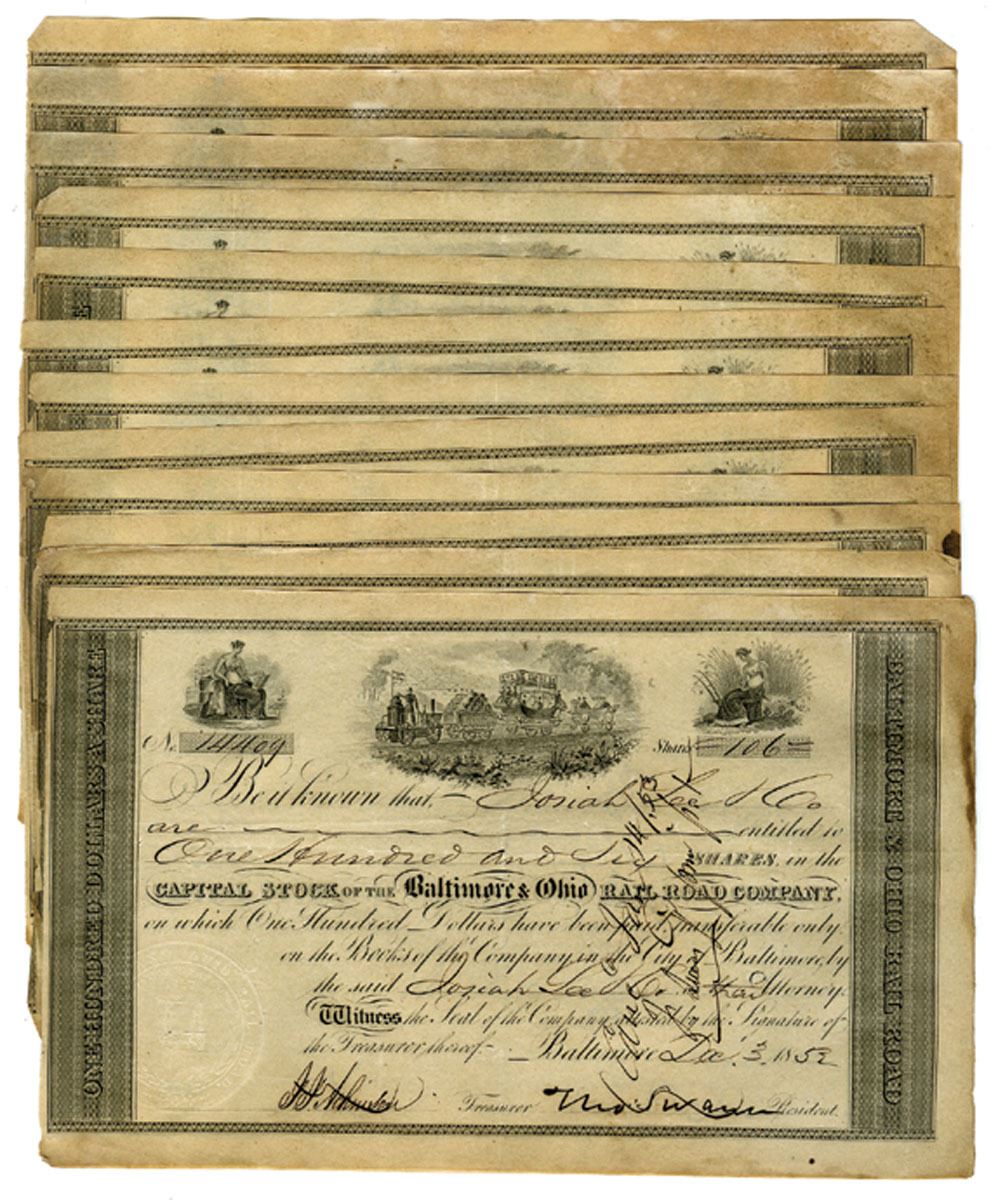 No. 14409 Shares 106
Be it known that, Josiah Lee & Co
are entitled to
One Hundred and Six SHARES, in the
CAPITAL STOCK OF THE Baltimore & Ohio RAIL ROAD COMPANY,
on which One Hundred Dollars have been paid, transferable only
on the Books of the Company, in the City of Baltimore, by
the said Josiah Lee & Co or their Attorney.
Witness the Seal of the Company attested by the Signature of
the Treasurer thereof. Baltimore Dec. 3, 1852
Treasurer Tho: Swann President.
ONE HUNDRED DOLLARS A SHARE
BALTIMORE & OHIO RAIL ROAD